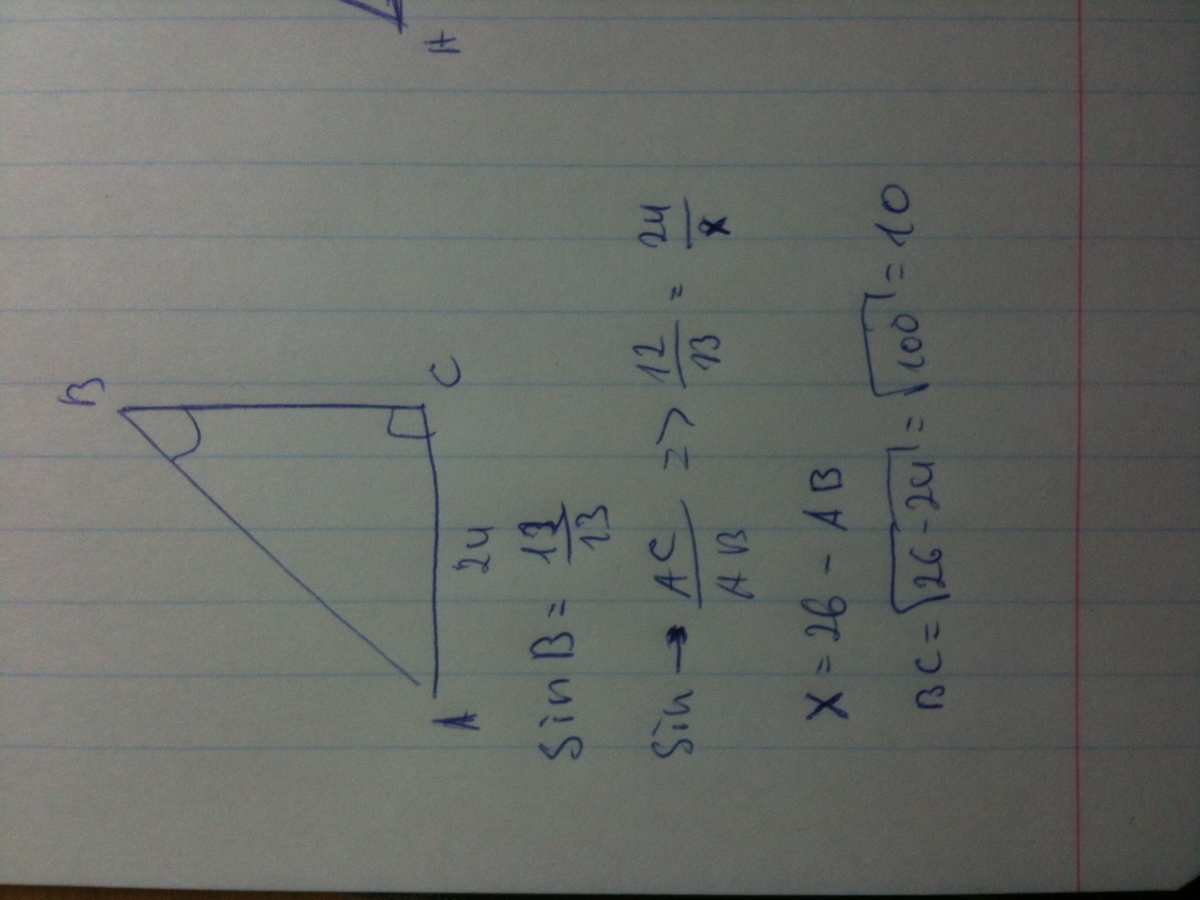 H
B
C
A
24
Sin B = 12/13
Sin → AC/AB => 12/13 = 24/x
X = 26 - AB
BC = √26-24 = √100 = 10